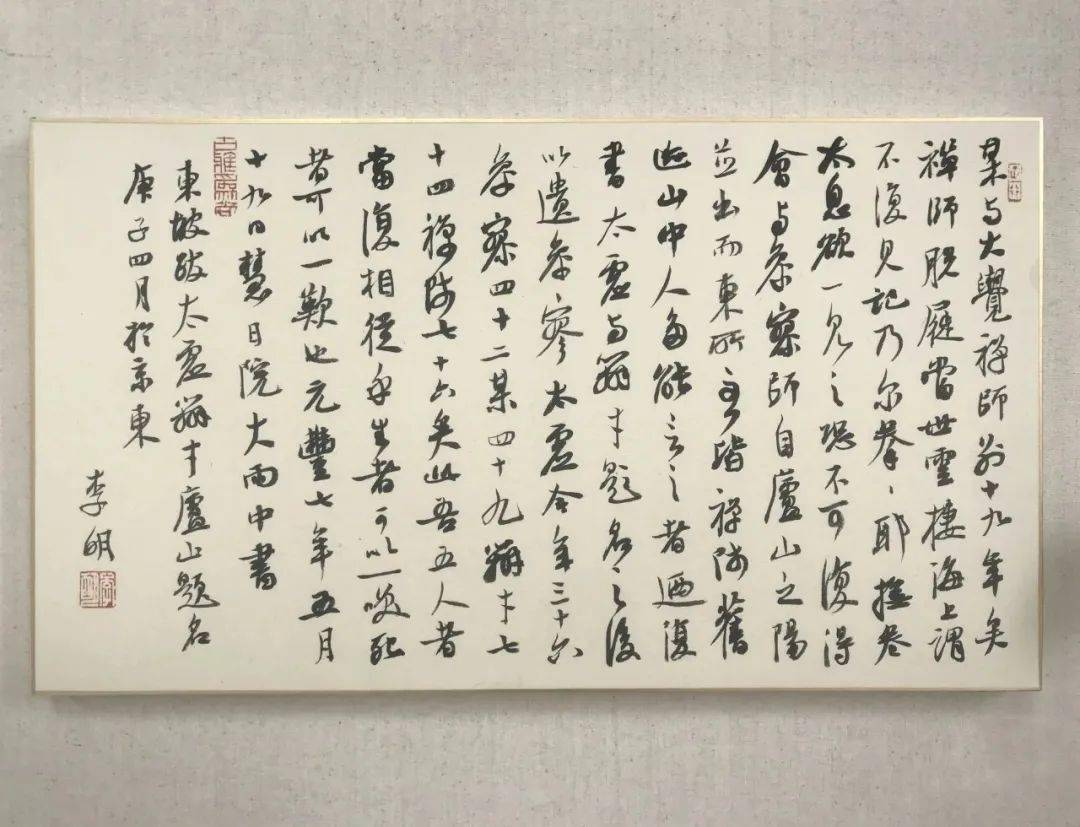 某与大覺禅師别十九年矣
禅師脱屣當世雲棲海上謂
不復見記乃尔拳〻耶撫卷
太息欲一見之恐不可復得
會与参寥師自廬山之陽
並出而東所至皆禅師舊
迹山中人多能言之者迺復
書太虚与辯才題名之後
以遺参寥太虚今年三十六
参寥四十二某四十九辯才七
十四禅師七十六矣此吾五人者
當復相從乎生者可以一咲死
者可以一歎也元豐七年五月
十九日慧日院大雨中書
東坡跋太虚辯才廬山題名
庚子四月於京東
李明